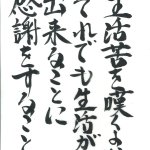 生活苦を嘆くよ
それでも生活が
出来ることに
感謝をすること